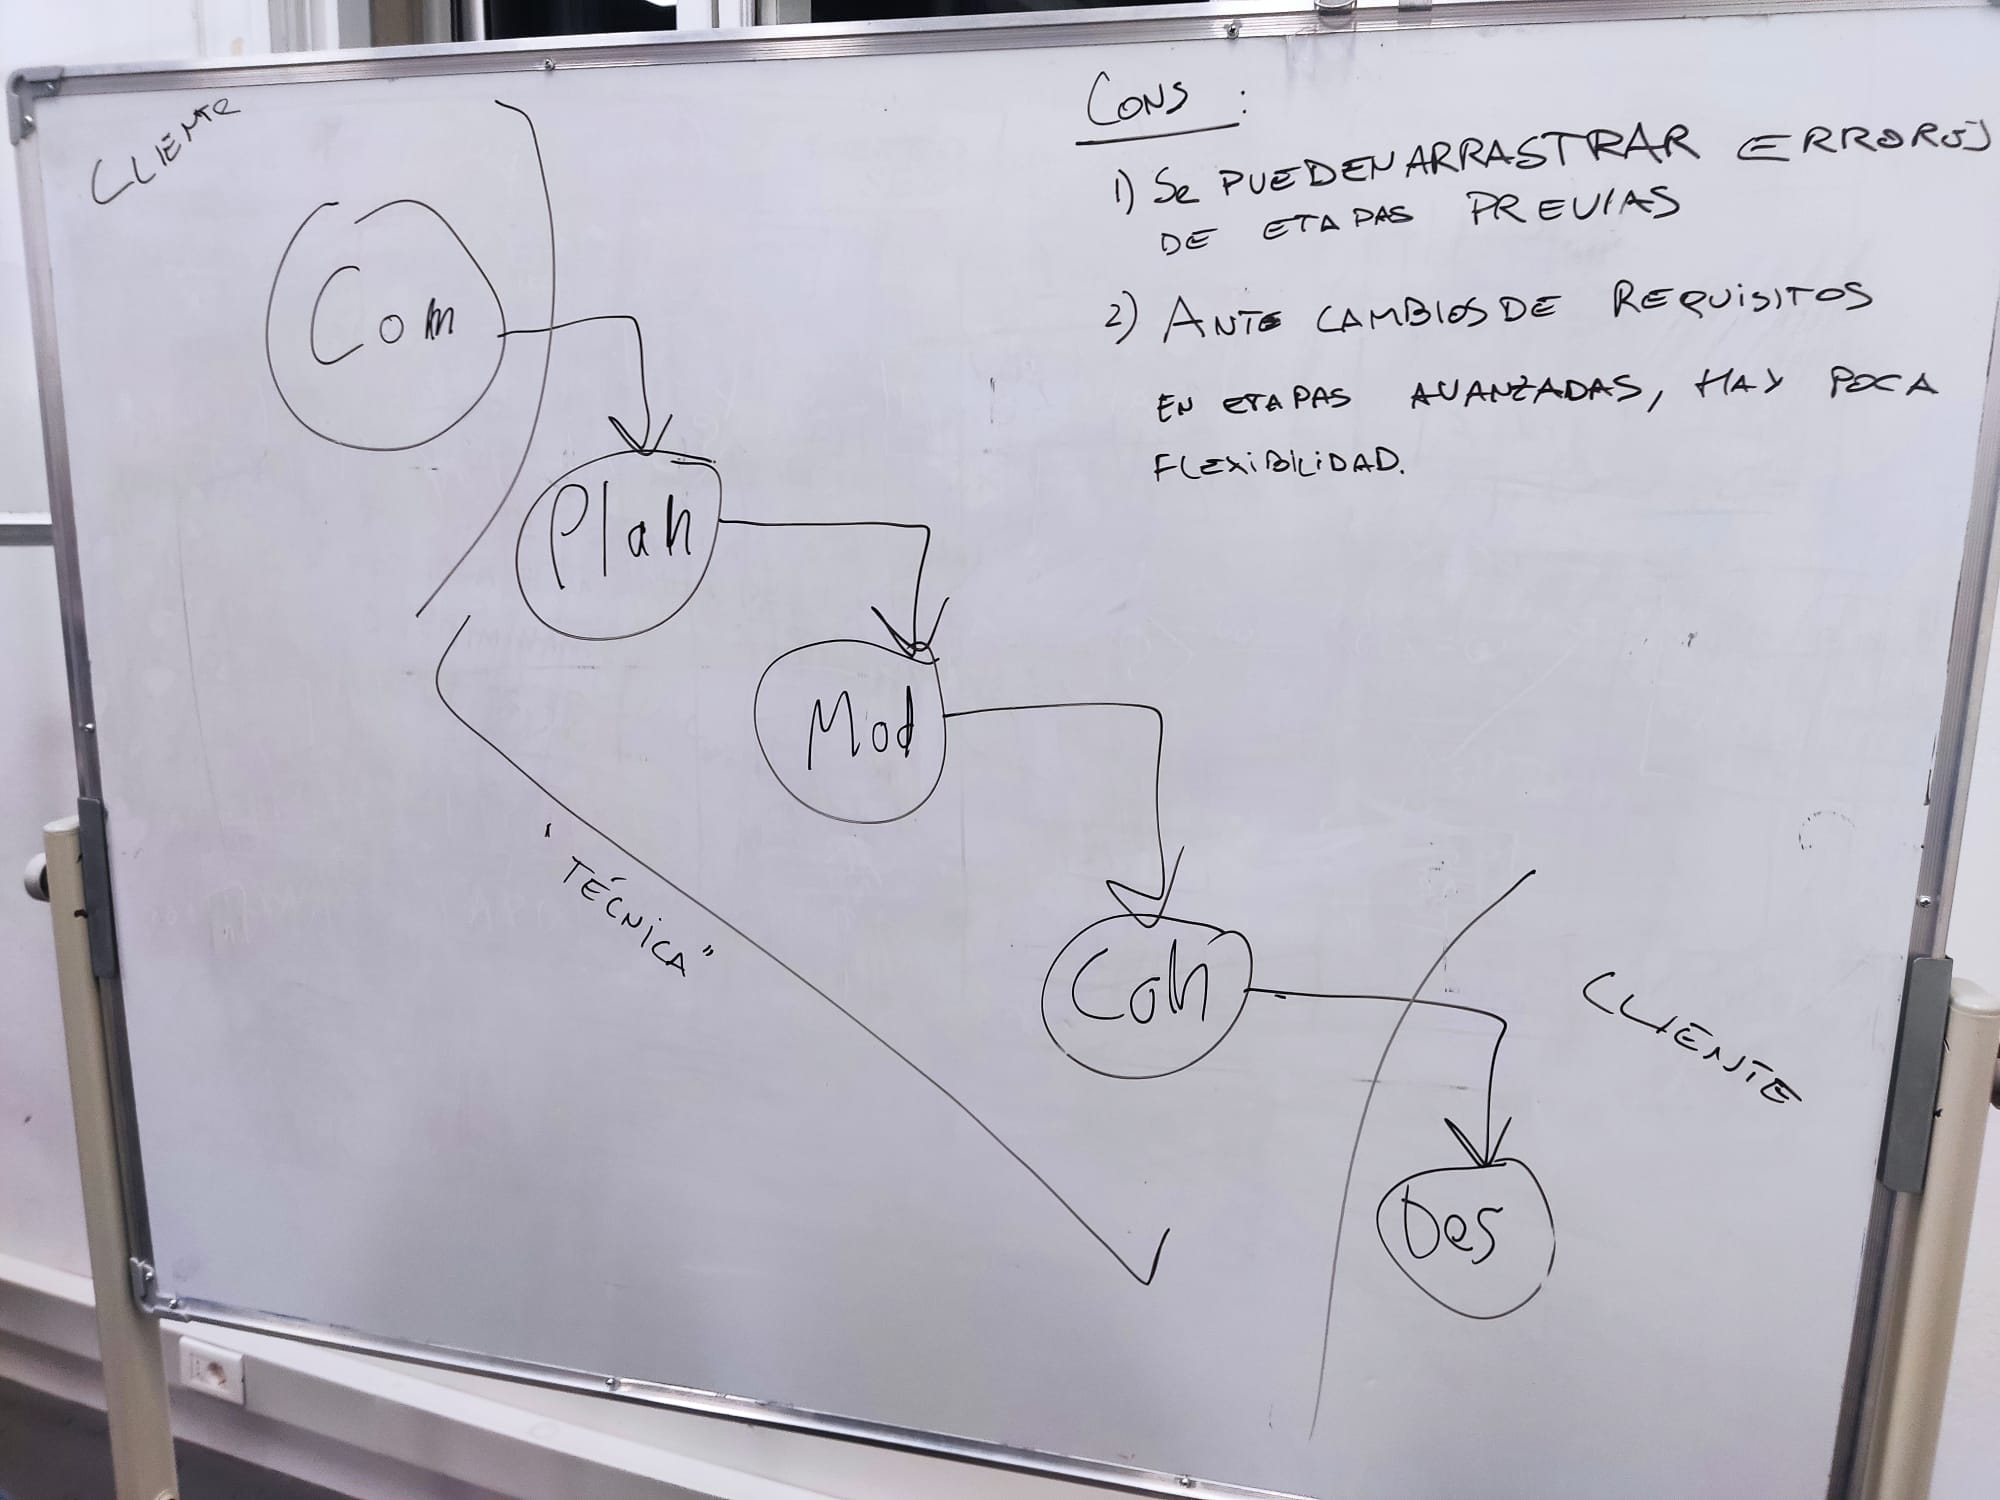 CLIENTE
Com
Plan
Mod
Con
Des
"TÉCNICA"
CLIENTE
CONS:
1) Se PUEDEN ARRASTRAR ERRORES
DE ETAPAS PREVIAS
2) ANTE CAMBIOS DE REQUISITOS
EN ETAPAS AVANZADAS, HAY POCA
FLEXIBILIDAD.